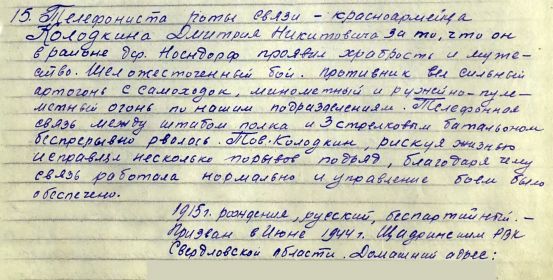 15. Телефониста роты связи – красноармейца
Колодкина Дмитрия Никитовича за то, что он
в районе дер. Носндорф проявил храбрость и муже-
ство. Шел ожесточенный бой. противник вел сильный
артогонь с самоходок, минометный и ружейно-пуле-
метный огонь по нашим подразделениям. Телефонная
связь между штабом полка и 3 стрелковым батальоном
беспрерывно рвалась. Тов. Колодкин, рискуя жизнью
исправил несколько порывов подряд, благодаря чему
связь работала нормально и управление боем было
обеспечено.
1915 г. рождения, русский, беспартийный. –
Призван в Июне 1944 г. Щадринским РВК
Свердловской области. Домашний адрес: